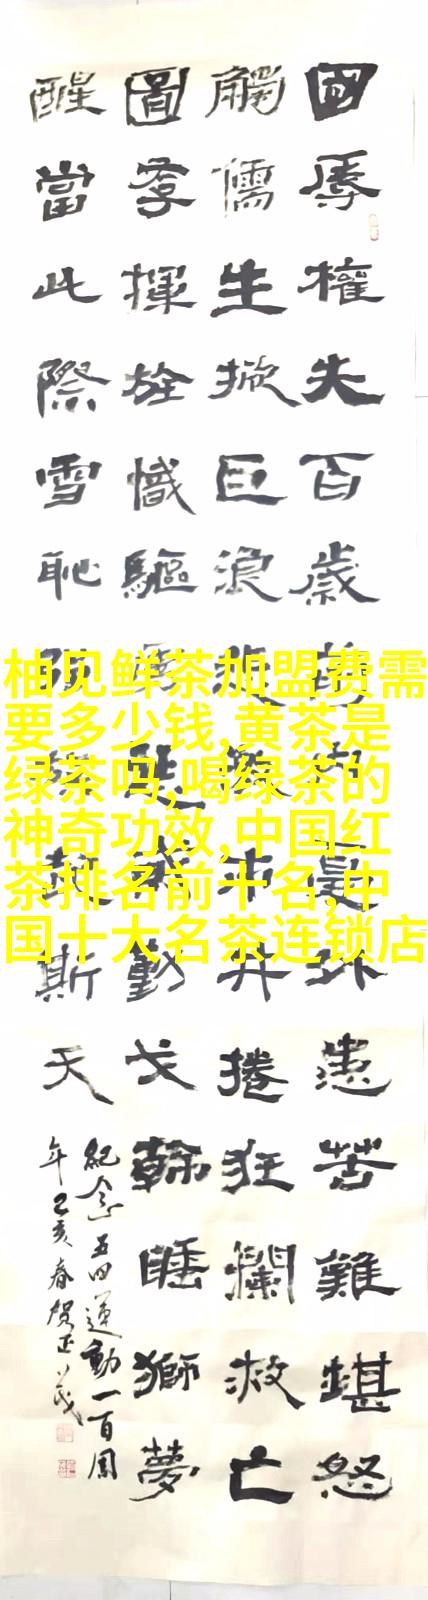 國辱權失百歲內憂外患苦難堪怒
觸儒生掀巨浪捲狂瀾救亡
圖存揮旌幟驅動戈睡獅夢
醒當此際雪恥斯天
紀念五四運動一百周
年己亥春賀正茂
柚见鲜茶加盟费需
要多少钱,黄茶是
绿茶吗,喝绿茶的
神奇功效,中国红
茶排名前十名,中
国十大名茶连锁店